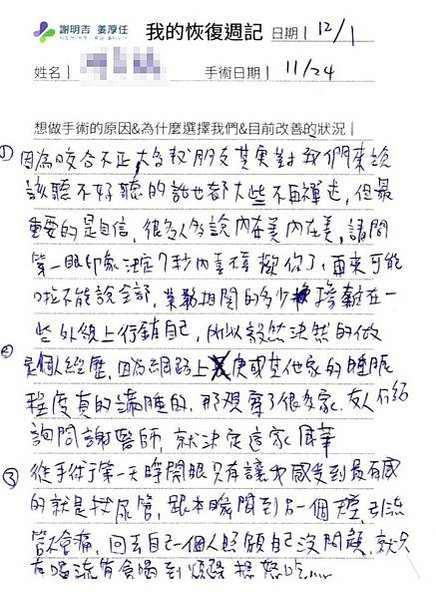 謝明吉 姜厚任
我的恢復週記 日期 | 12/1
姓名 | 手術日期 | 11/24
想做手術的原因&為什麼選擇我們&目前改善的狀況 |
① 因為咬合不正 大多數朋友其實對我們來說
該聽不好聽的話也都大些不再禪走,但最
重要的是自信,很多人多說內在美內在美,請問
第一眼印象決定7秒內喜不喜歡你了,再來可能
啦不能說全部,業務相關的多少 摻雜在一
些外貌上行銷自己,所以毅然決然的做
② 是個人經歷,因為網路上 其他家的腫脹
程度真的滿腫的,那觀察了很多家,友人介紹
詢問謝醫師,就決定這家
③ 從手術完第一天時開眼只有讓我感受到最有感
的就是扙尿管,跟本瞬間到另一個 引流
管不會痛,回去自己一個人照顧自己沒問題,就只
有喝流質食喝到煩 想怒吃